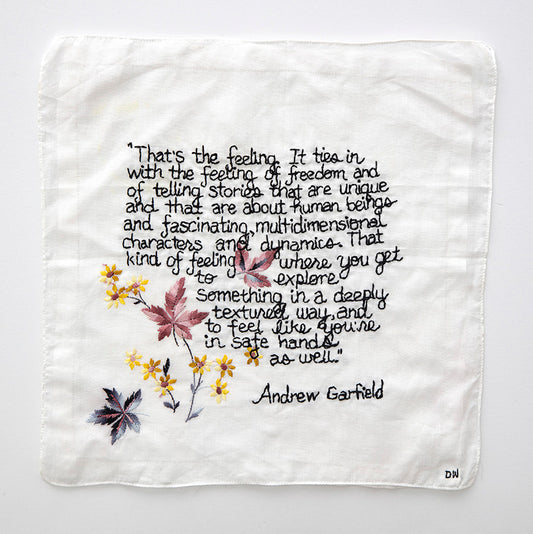 "That's the feeling. It ties in
with the feeling of freedom and
of telling stories that are unique
and that are about human beings
and fascinating, multidimensional
characters and dynamics. That
kind of feeling where you get
to explore
something in a deeply
textured way, and
to feel like you're
in safe hands
as well."
Andrew Garfield
DW